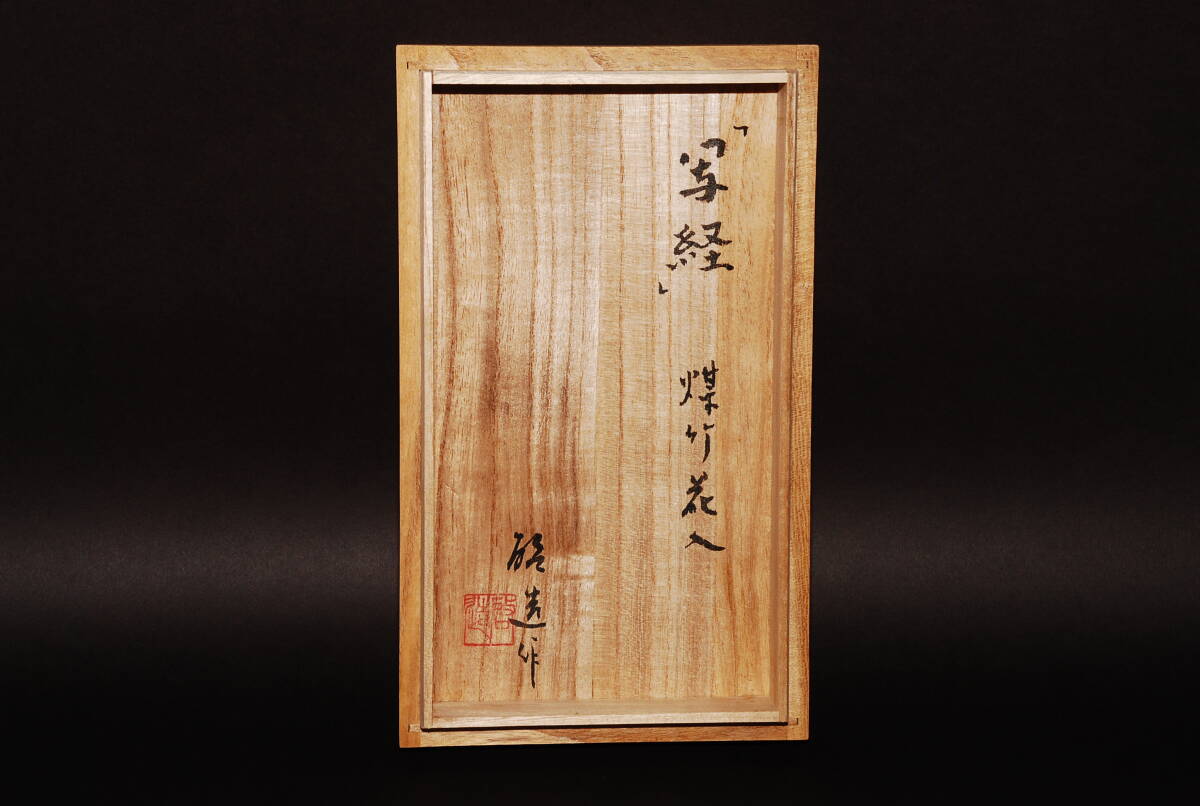 「写経」 煤竹花入
造作